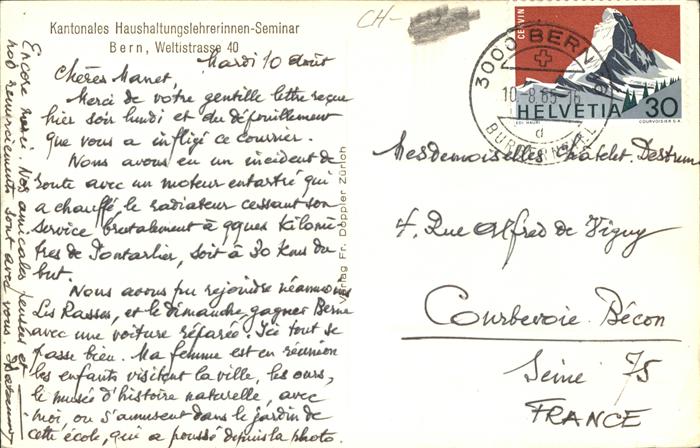 Kantonales Haushaltungslehrerinnen-Seminar
Bern, Weltistrasse 40
CH-
Mardi 10 Août
Chères Manet,
Merci de votre gentille lettre reçue
hier soir lundi et du dépouillement
que vous a infligé ce courrier.
Nous avons eu un incident de
route avec un moteur entartré qui
a chauffé, le radiateur cessant son
service brutalement à qques kilomè
tres de Pontarlier, soit à 30 kms du
but.
Nous avons pu rejoindre néanmoins
Les Rasses, et le dimanche, gagner Berne
avec une voiture réparée. Ici tout se
passe bien. Ma femme est en réunion
les enfants visitent la ville, les ours,
le musée d'histoire naturelle, avec
moi, ou s'amusent dans le jardin de
cette école, qui a poussé depuis la photo.
Encore merci. Nos amicales pensées et
nos remerciements sont avec vous.
Verlag Fr. Doppler Zürich
3000 BERN
10.-8.65.-16
d
CERVIN
HELVETIA 30
EDI HAURI
COURVOISIER S.A.
Mesdemoiselles Chatelet. Destrum
4. Rue Alfred de Vigny
Courbevoie. Bécon
Seine 75
FRANCE